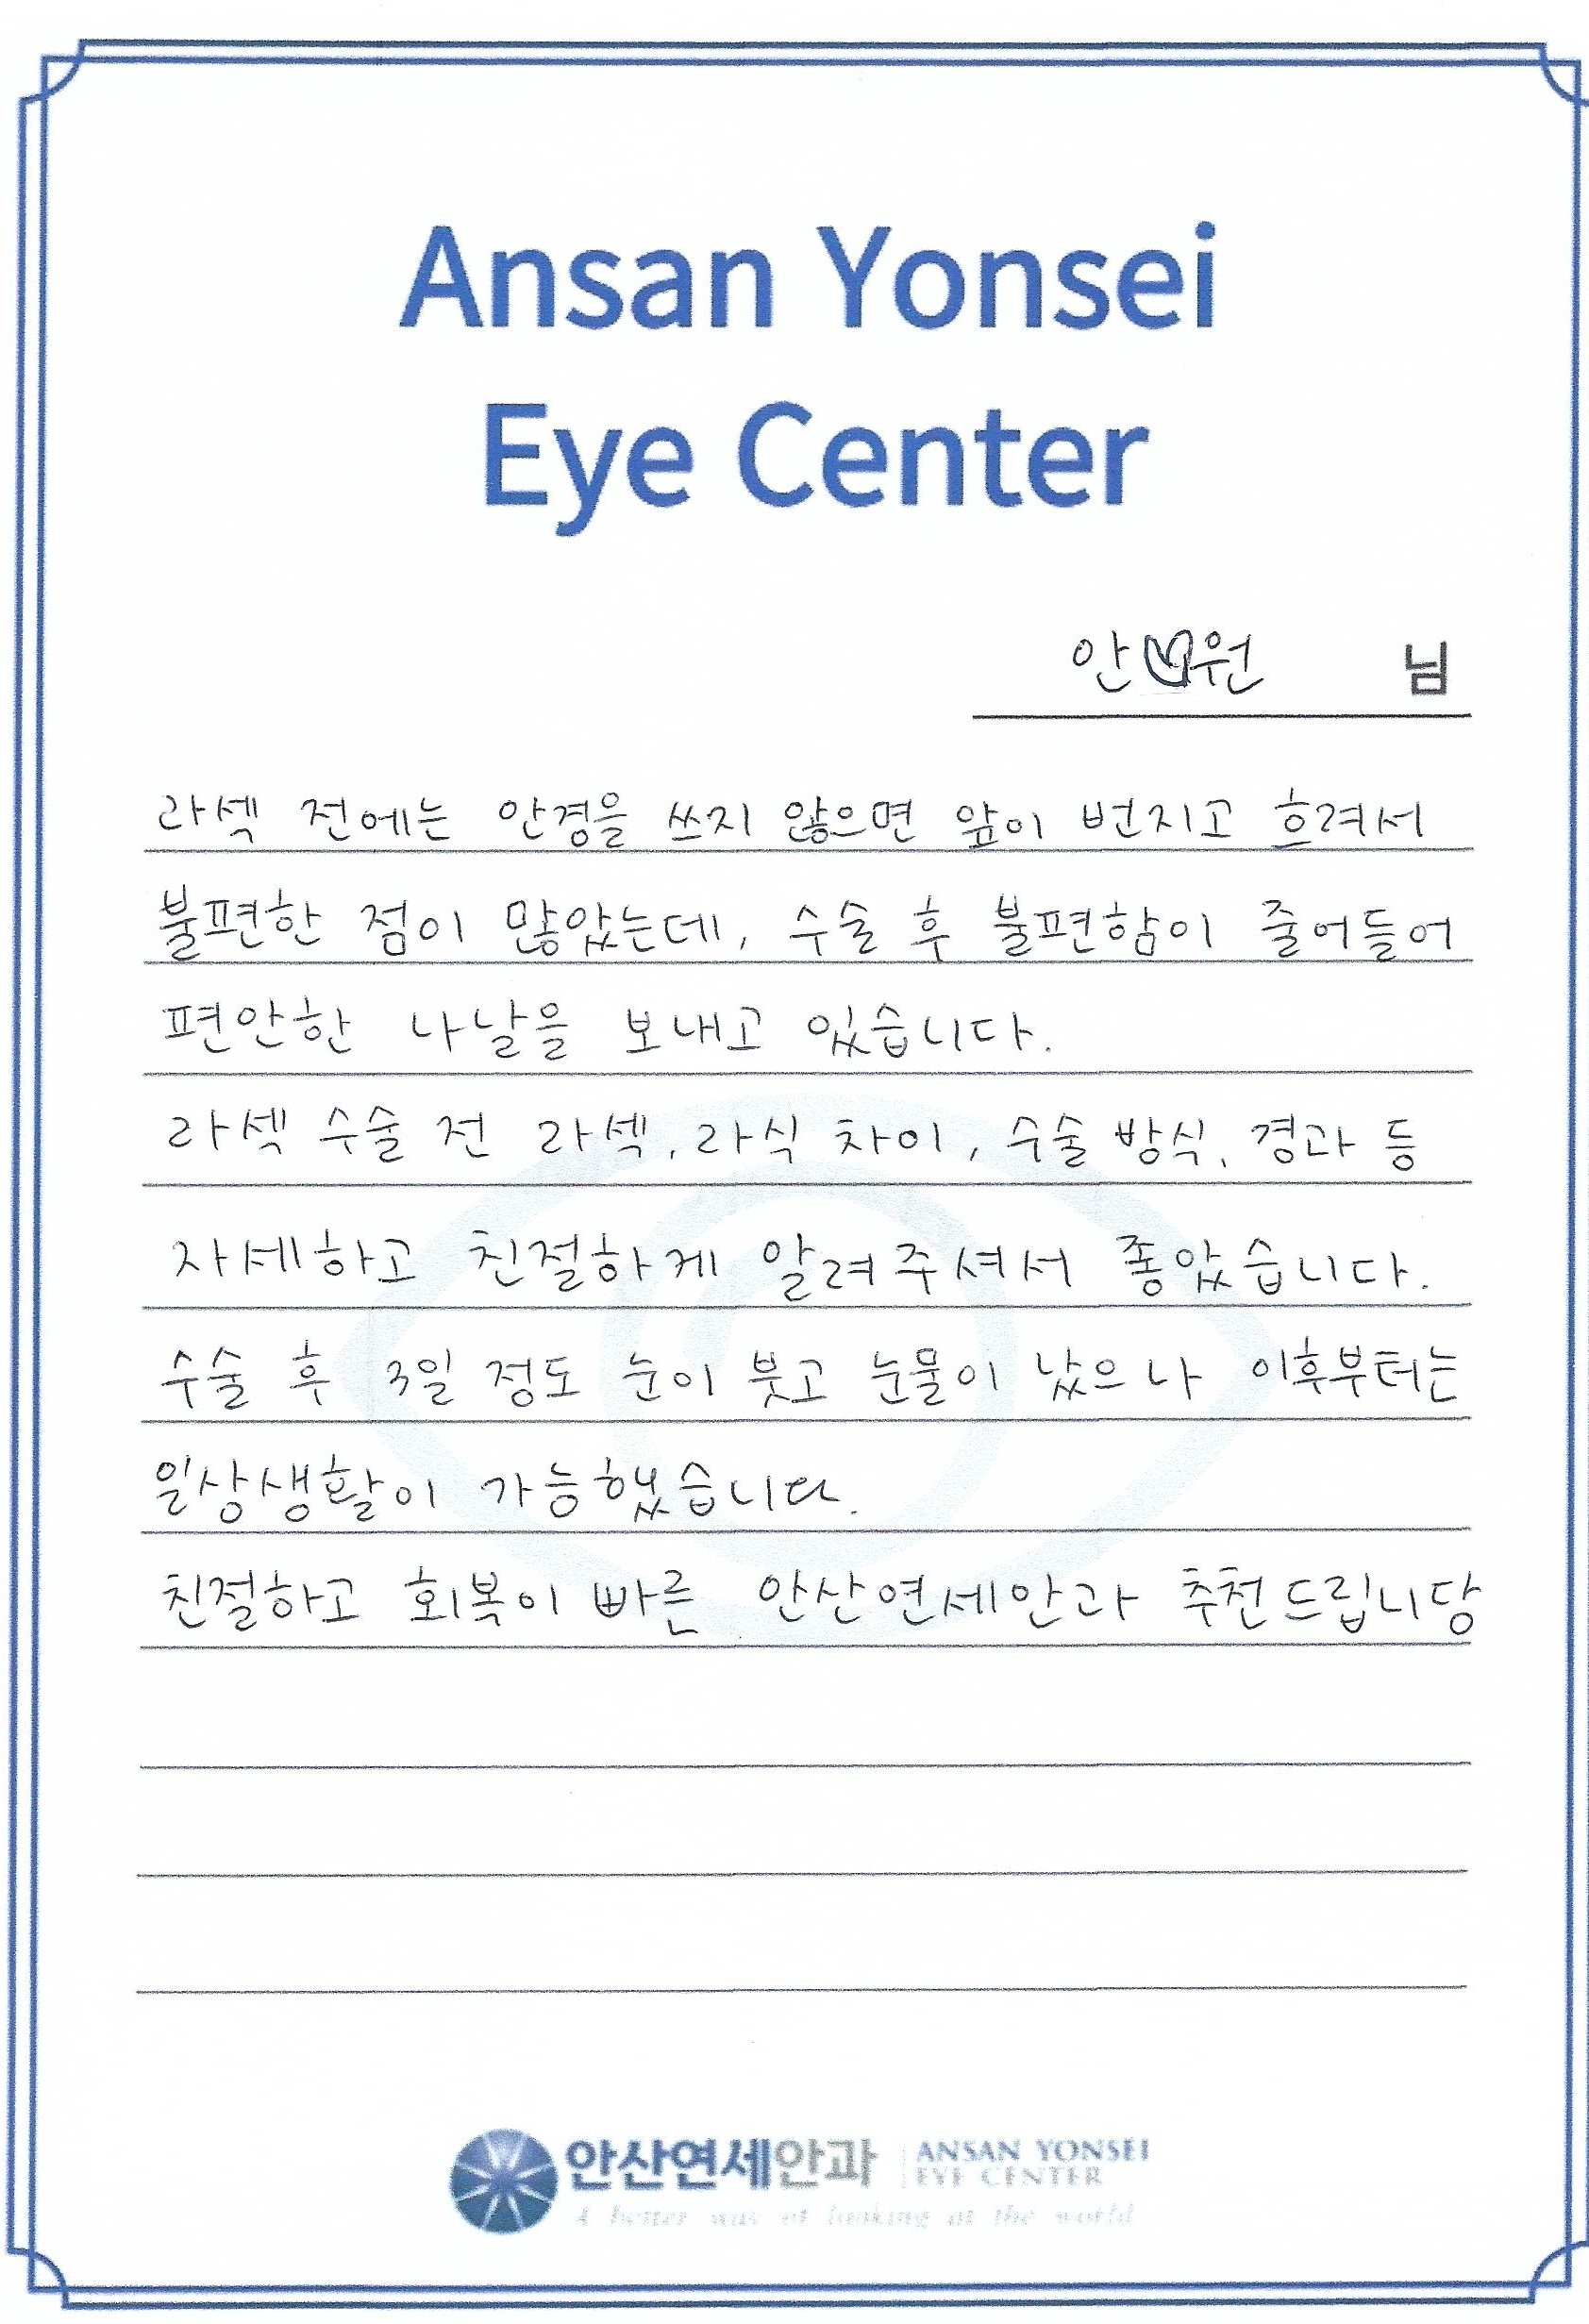 Ansan Yonsei
Eye Center
안♡원 님
라섹 전에는 안경을 쓰지 않으면 앞이 번지고 흐려서
불편한 점이 많았는데, 수술 후 불편함이 줄어들어
편안한 나날을 보내고 있습니다.
라섹 수술 전 라섹, 라식 차이, 수술 방식, 경과 등
자세하고 친절하게 알려주셔서 좋았습니다.
수술 후 3일 정도 눈이 붓고 눈물이 났으나 이후부터는
일상생활이 가능했습니다.
친절하고 회복이 빠른 안산연세안과 추천드립니당
안산연세안과 ANSAN YONSEI
EYE CENTER
A better way of looking at the world